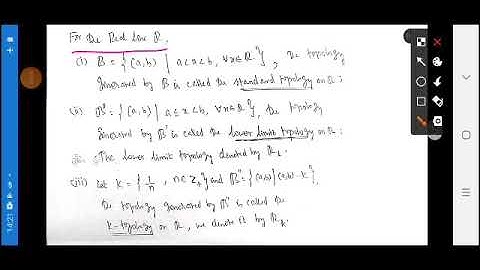 For the Real line R.
(i) B = { (a,b) | a<x<b, ∀x∈R }, the topology
generated by B is called the standard topology on R:
(ii) B' = { (a,b) | a≤x<b, ∀x∈R }, the topology
generated by B' is called the lower limit topology on R:
The lower limit topology denoted by R_L.
(iii) Let K = { 1/n , n∈Z+ } and B'' = { (a,b) | (a,b)-K }.
the topology generated by B'' is called the
K-topology on R, we denote it by R_K.
14:21